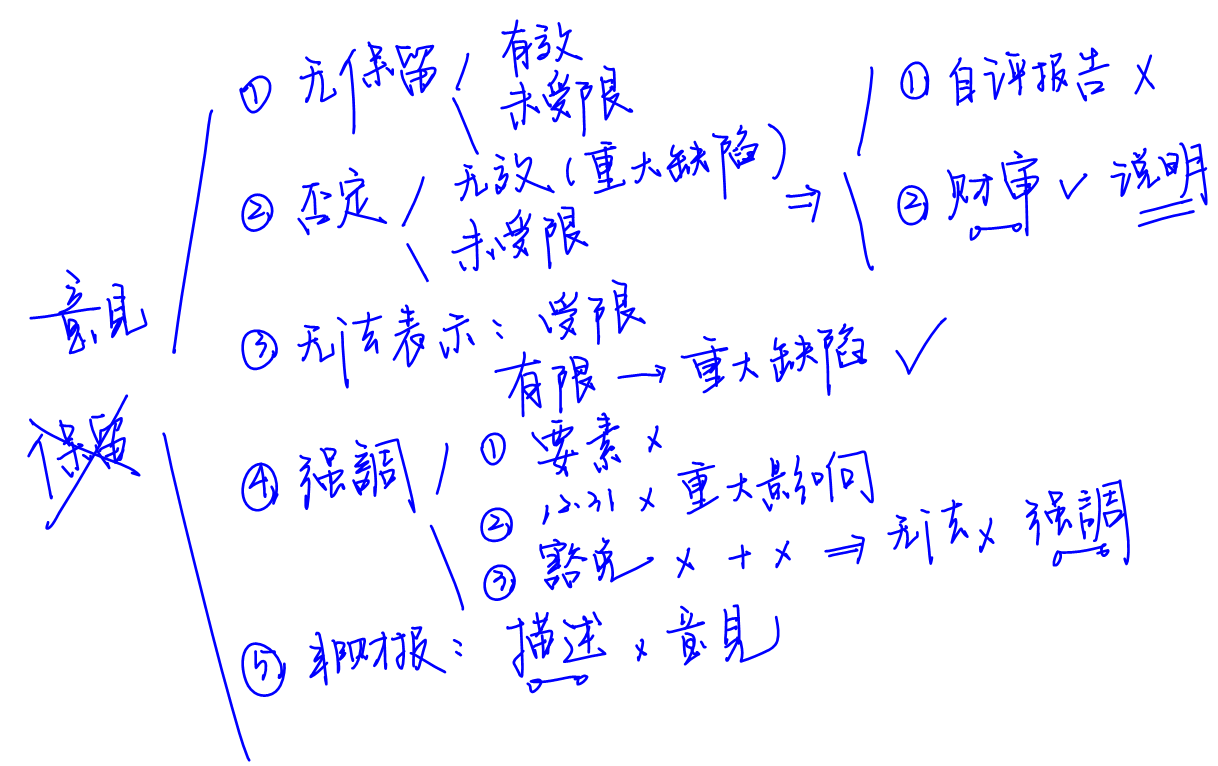 意见
保留
① 无保留 有效
未受限
② 否定 无效(重大缺陷) ⇒ ① 自评报告 ×
未受限 ② 财审 ✓ 说明
③ 无法表示: 受限
有限 → 重大缺陷 ✓
④ 强調 ① 要素 ×
② 12.31 × 重大影响
③ 豁免 × + × ⇒ 无法 × 强調
⑤ 非财报: 描述 × 意見